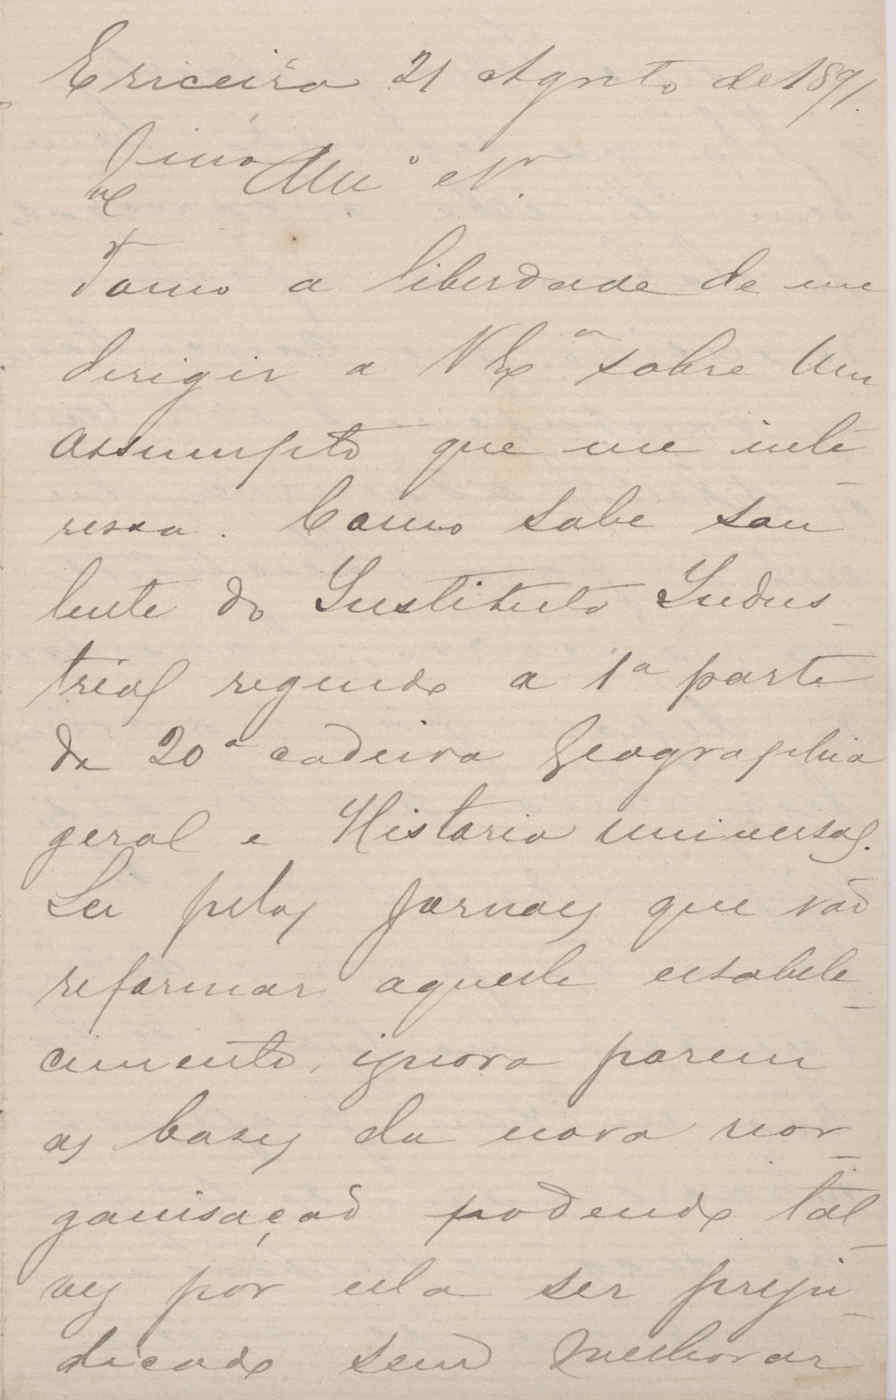 Ericeira 21 Agosto de 1891.
Exmo Am.º e Sr.
Tomo a liberdade de me
dirigir a V Exª sobre Um
assumpto que me inte-
ressa. Como sabe sou
lente do Instituto Indus-
trial regendo a 1ª parte
da 20ª cadeira Geographia
geral e Historia universal.
Lei pelos Jornaes que vão
reformar aquelle estabele-
cimento, ignoro porem
as bases da nova reor-
ganisação podendo tal-
vez por ella ser preju-
dicado sem melhorar